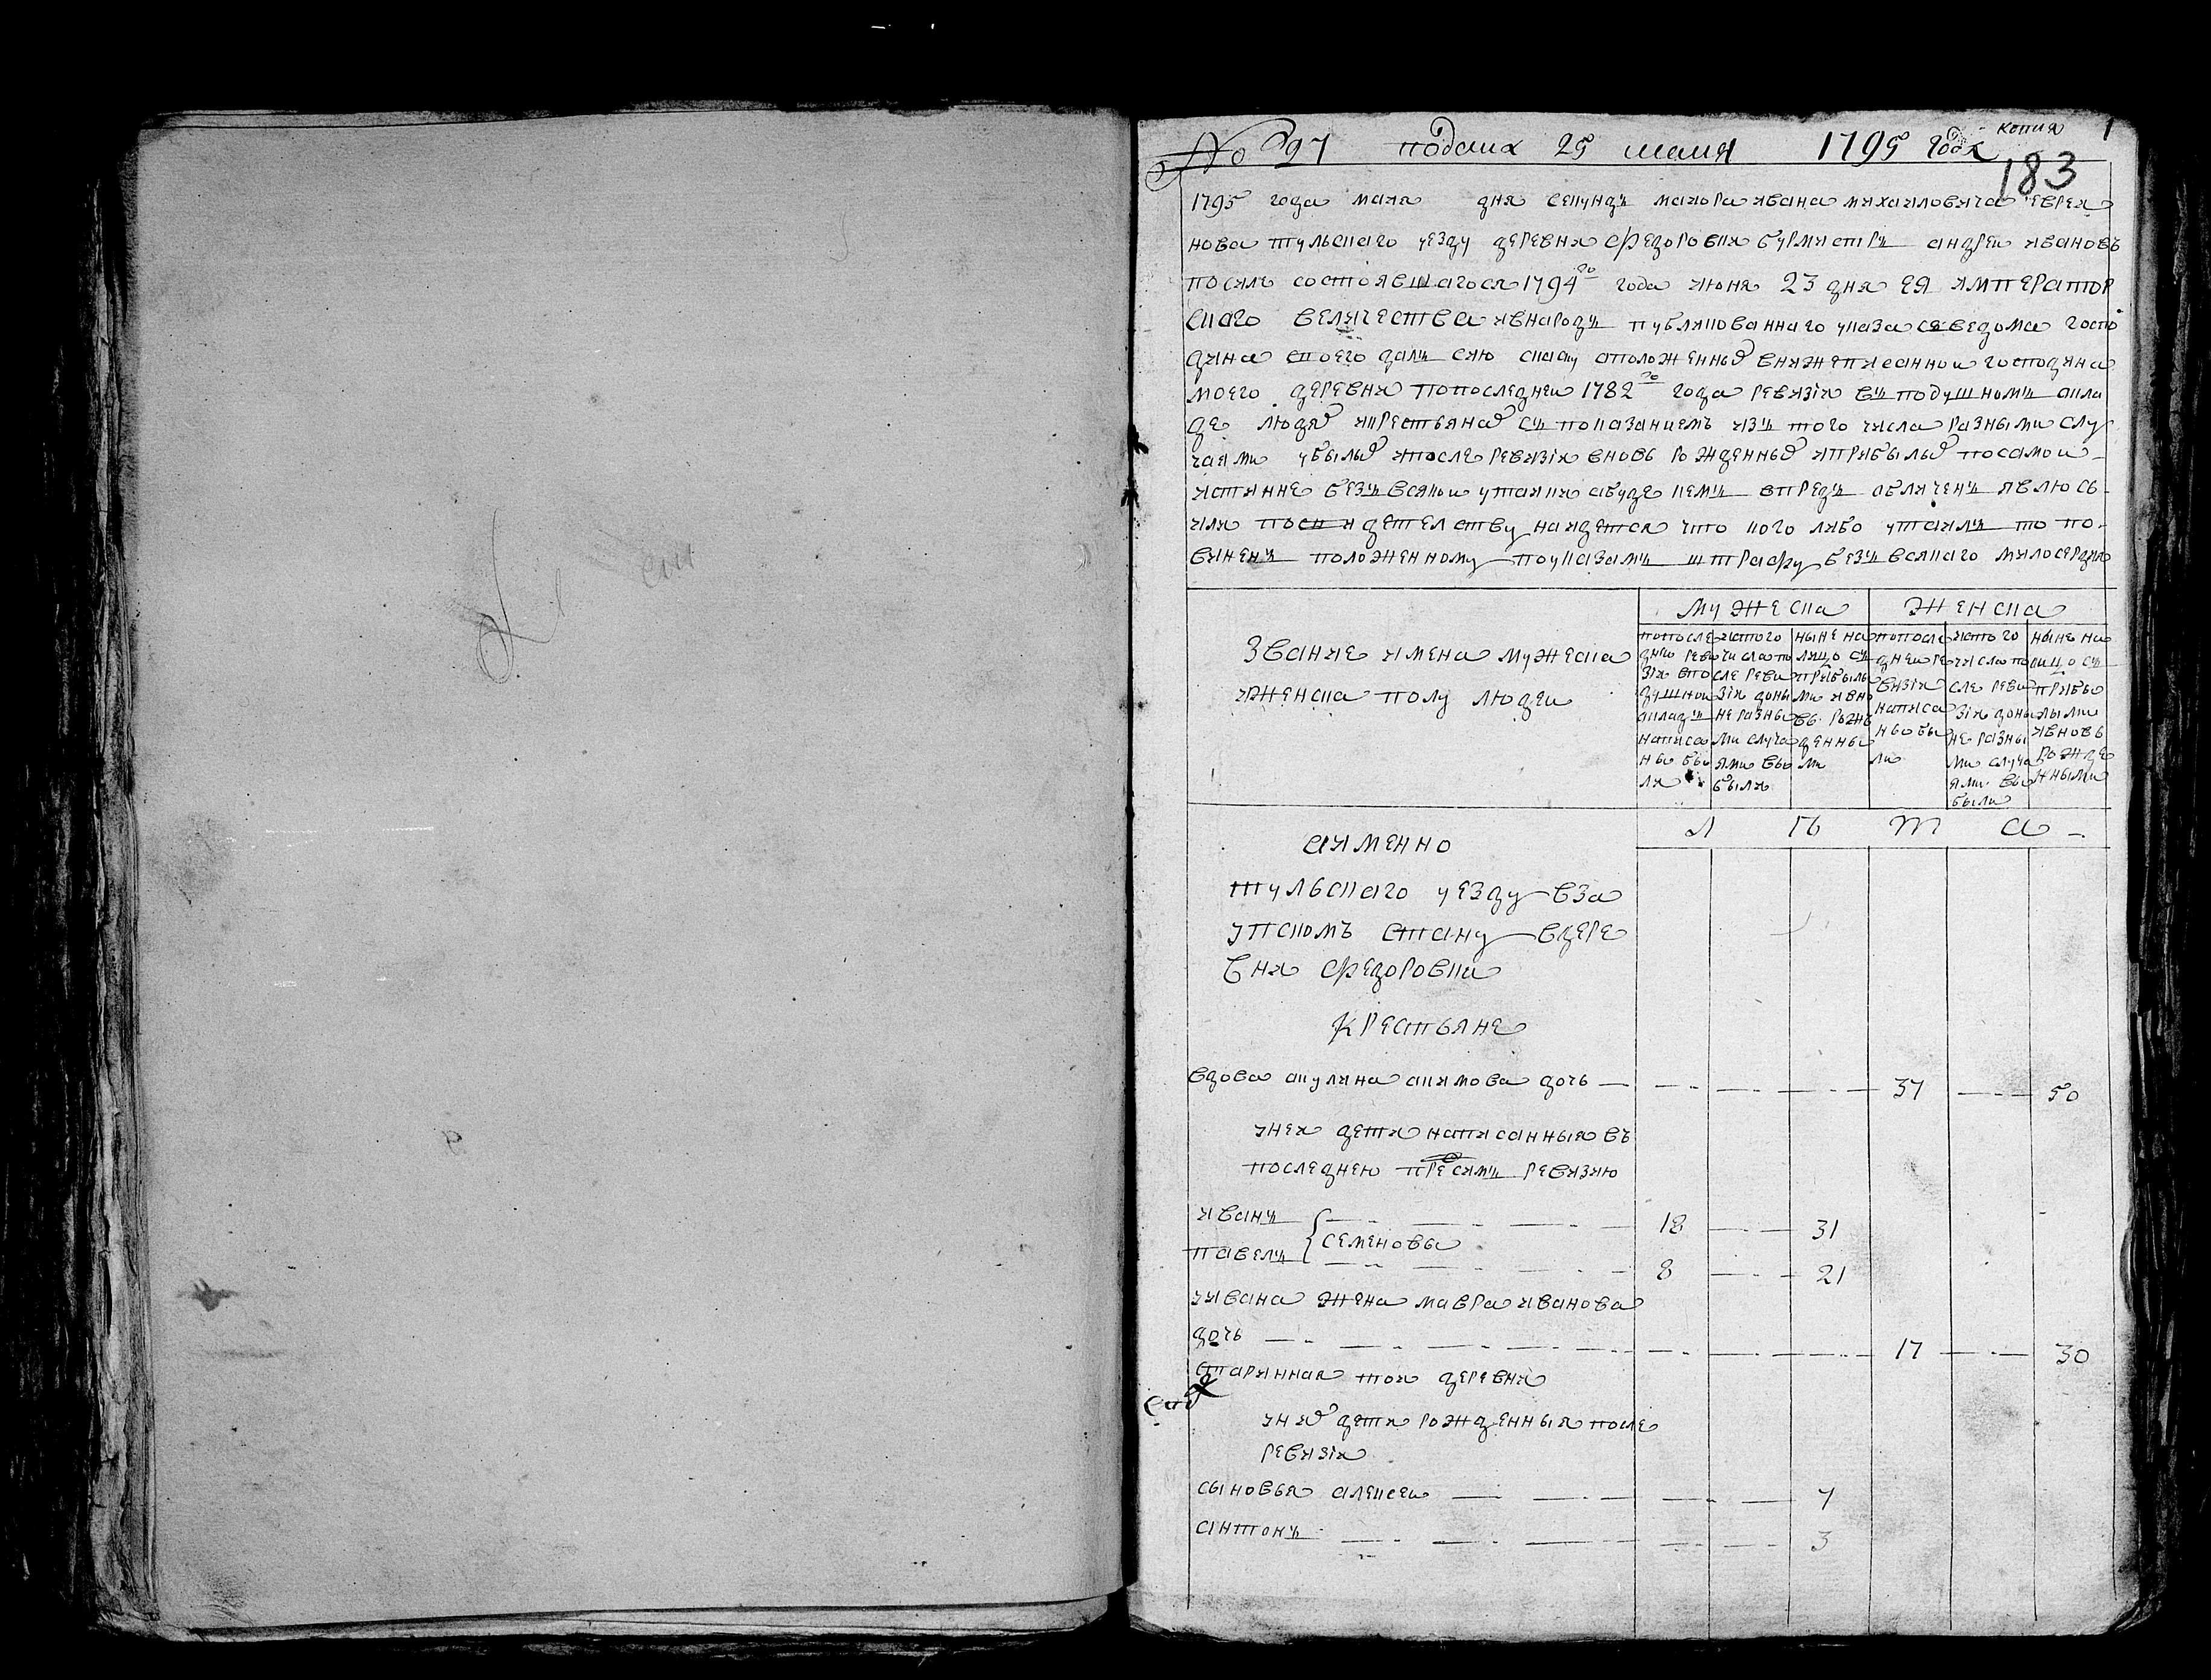 копия 1
№ 97 подана 25 маия 1795 года
183
1795 года маия дня секундъ маиора ивана михаиловича евреи
нова тульскаго уезду деревни федоровки бурмистръ андреи ивановъ
посиле состоявшагося 1794го года июня 23 дня ея император
скаго величества ивнародъ публикованнаго указа сведома госпо
дина своего далъ сию скаску оположенных внижеписаннои господина
моего деревни попоследнеи 1782го года ревизіи въ подушномъ окла
де людях икрестьянах съ показаниемъ изъ того числа разными слу
чаями убылых ипосле ревизіи вновь рожденных иприбылых посамои
истинне безъ всякои утаики абуде кемъ впредь обличенъ явлюсь
или по свидетелству наидется что кого либо утаилъ то по
виненъ положенному поуказамъ штрафу безъ всякаго милосердия
Мужеска Женска
Звание имена мужеска
иженска полу людеи
попосле
днеи реви
зіи впо
душнои
окладъ
написа
ны бы
ли
истого
числа по
сле реви
зіи доны
не разны
ми случа
ями вы
были
ныне на
лицо съ
прибылы
ми ивно
вь рожд
денны
ми
попосле
днеи ре
визіи
написа
ны бы
ли
исто го
числа по
сле реви
зіи доны
не разны
ми случа
ями вы
были
ныне на
лицо съ
прибы
лыми
ивновь
рожде
нными
Л Ѣ Т А
аименно
тульскаго уезду вза
упскомъ стану вдере
вни федоровки
Крестьяне
вдова акулина акимова дочь 37 50
унеи дети написанныя въ
последнею пре симъ ревизию
иванъ 18 31
Семеновы
павелъ 8 21
уивана жена мавра иванова
дочь 17 30
старинная тои деревни
уних дети рожденныя после
ревизіи
сыновья алексеи 7
антонъ 3